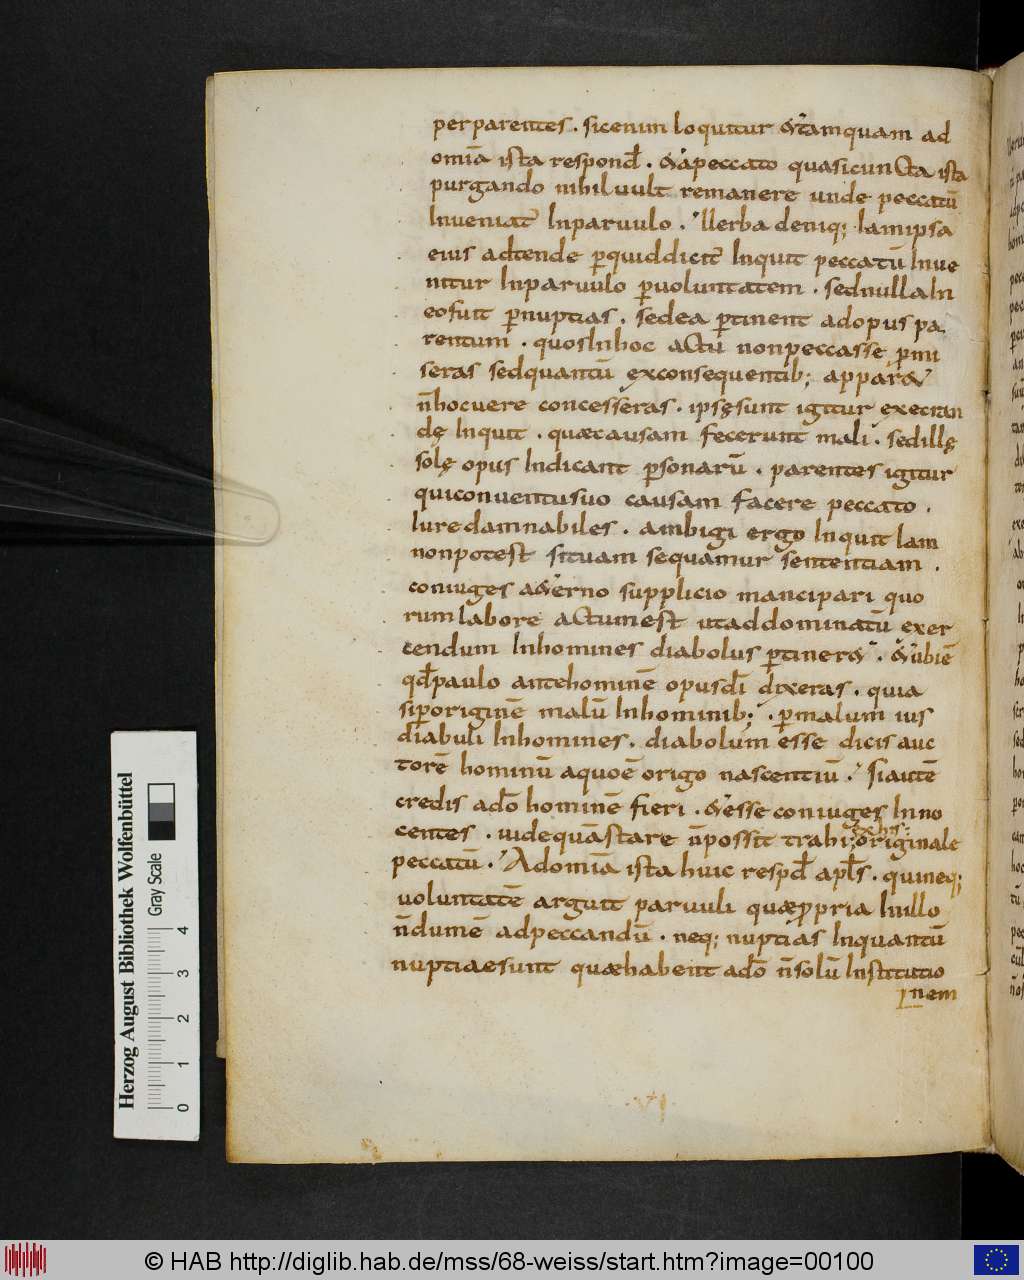 perparentes . sicenim loquitur &tamquam ad
omīa ista respond̄ . &apeccato quasicuncta ista
purgando nihiluult remanere unde peccatū
Inueniat Inparuulo . Uerba deniq; Iamipsa
eius adtende ꝑquiddicit Inquit peccatū Inue
nitur Inparuulo ꝑuoluntatem . sednullaIn
eofuit ꝑnuptias . sedea ꝑtinent adopus pa
rentum . quosInhoc actu nonpeccasse ꝑmi
seras sedquantū exconsequentib; appar&
n̄hocuere concesseras . ipsęsunt igitur execran
dę Inquit . quæcausam fecerunt mali . sedillę
solę opus Indicant ꝑsonarū . parentes igitur
quiconuentusuo causam facere peccato .
Iure damnabiles . ambigi ergo Inquit Iam
nonpotest situam sequamur sententiam .
coniuges a&erno supplicio mancipari quo
rum labore actumest utaddominatū exer
cendum Inhomines diabolus ꝑtiner& . &ubiē
qd̄paulo antehominē opusdī dixeras . quia
siꝑoriginē malū Inhominib; . ꝑmalum ius
diabuli Inhomines . diabolum esse dicis auc
torē hominū aquoē origo nascentiū . Siautē
credis adō hominē fieri . &esse coniuges Inno
centes . uidequāstare n̄possit trahi; originale
exhis
peccatū . Adomīa ista huic respd̄ apl̄s . quineq;
uoluntatē arguit paruuli quæꝓpria Inillo
n̄dumē adpeccandū . neq; nuptias Inquantū
nuptiaesunt quæhabent adō n̄solū Institutio
nem
VI
Herzog August Bibliothek Wolfenbüttel
Gray Scale
0 1 2 3 4
© HAB http://diglib.hab.de/mss/68-weiss/start.htm?image=00100